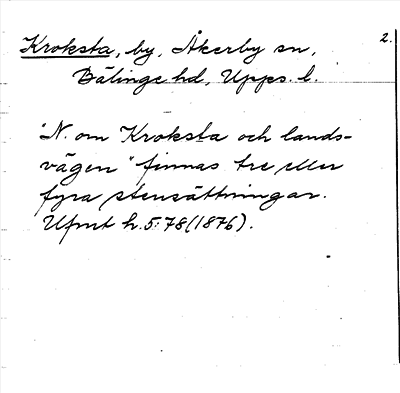 Kroksta, by, Åkerby sn, 2.
Bälinge hd, Upps. l.
"N. om Kroksta och lands-
vägen" finnas tre eller
fyra stensättningar.
Ufmt h. 5:78 (1876).